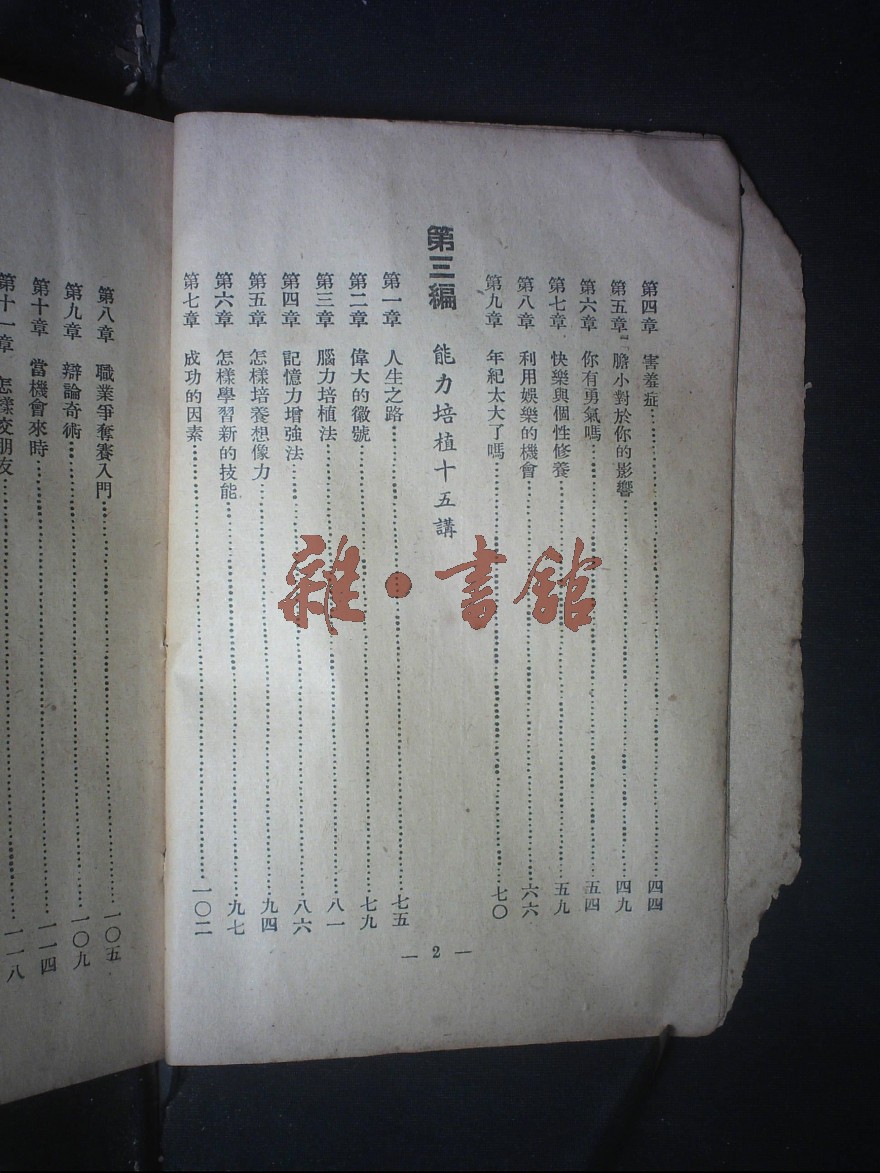 第四章 害羞症…………四四
第五章 「膽小對於你的影響…………四九
第六章 你有勇氣嗎…………五四
第七章 快樂與個性修養…………五九
第八章 利用娛樂的機會…………六六
第九章 年紀太大了嗎…………七〇
第三編 能力培植十五講
第一章 人生之路…………七五
第二章 偉大的徽號…………七九
第三章 腦力培植法…………八一
第四章 記憶力增強法…………八六
第五章 怎樣培養想像力…………九四
第六章 怎樣學習新的技能…………九七
第七章 成功的因素…………一〇二
— 2 —
第八章 職業爭奪賽入門…………一〇五
第九章 辯論奇術…………一〇九
第十章 當機會來時…………一一四
第十一章 怎樣交朋友…………一一八
雜·書館